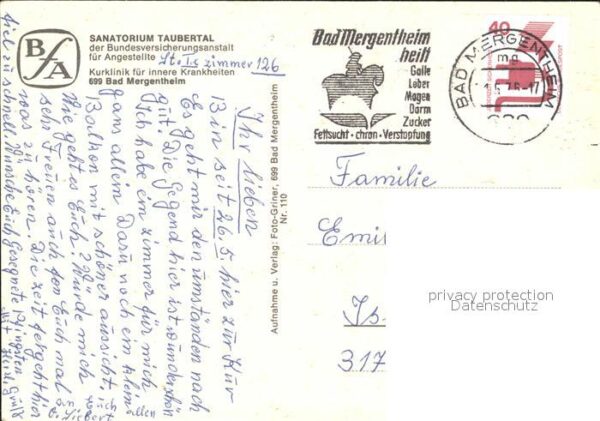 BfA
SANATORIUM TAUBERTAL
der Bundesversicherungsanstalt
für Angestellte
St. Is zimmer 126
Kurklinik für innere Krankheiten
699 Bad Mergentheim
Ihr lieben
Bin seit 26.5. hier zur Kur
Es geht mir den umständen nach
gut. Die Gegend hier ist wunderschön
Ich habe ein zimmer für mich
ganz allein Dazu noch ein klein
Balkon mit schöner aussicht.
Wie geht es Euch? Würde mich
sehr Freuen auch von Euch mal
was zu hören. Die zeit vergeht hier
viel zu schnell. Wünsche Euch Gesegnete Pfingsten
Aufnahme u. Verlag: Foto-Griner, 699 Bad Mergentheim
Nr. 110
Bad Mergentheim
heilt
Galle
Leber
Magen
Darm
Zucker
Fettsucht · chron. Verstopfung
40
BAD MERGENTHEIM
mg
Familie
Emi
Is
317
privacy protection
Datenschutz